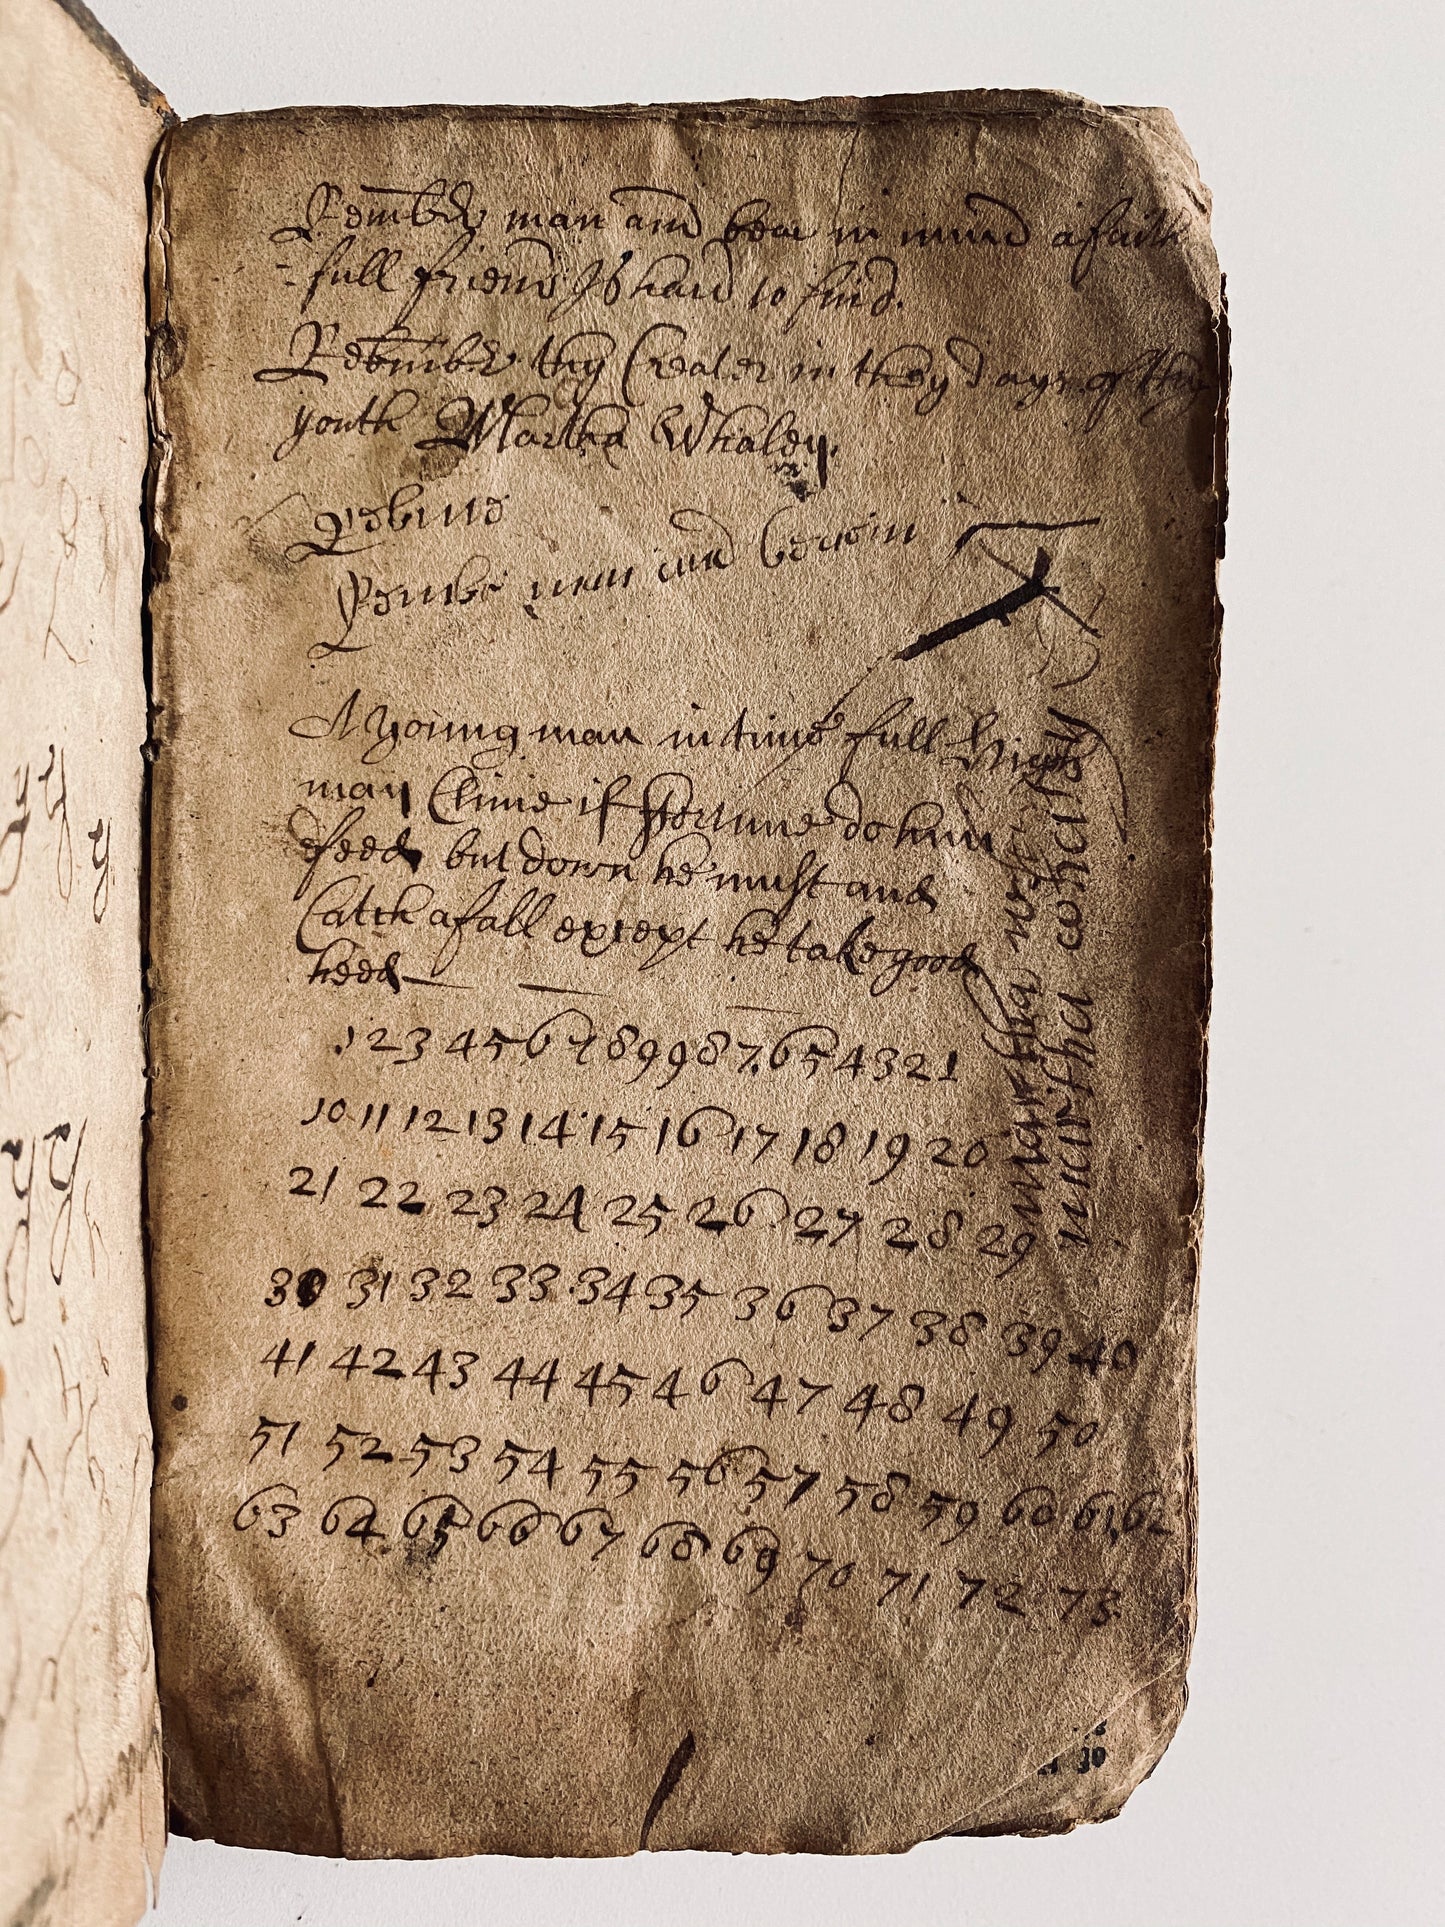 Rembr man and bear in mind a faith
=full friend Is hard to find.
Rebmber thy Creater in they days of thy
youth Martha Whaley.
Rebme
Rembr man and bear in
A young man in time full high
may Clime if ffortune do him
feed but down he must and
Catch a fall except he take good
heed
1 2 3 4 5 6 7 8 9 9 8 7. 6 5 4 3 2 1
10 11 12 13 14 15 16 17 18 19 20
21 22 23 24 25 26 27 28 29
30 31 32 33 34 35 36 37 38 39 40
41 42 43 44 45 46 47 48 49 50
51 52 53 54 55 56 57 58 59 60 61 62
63 64 65 66 67 68 69 70 71 72 73
martha
martha whaley
30